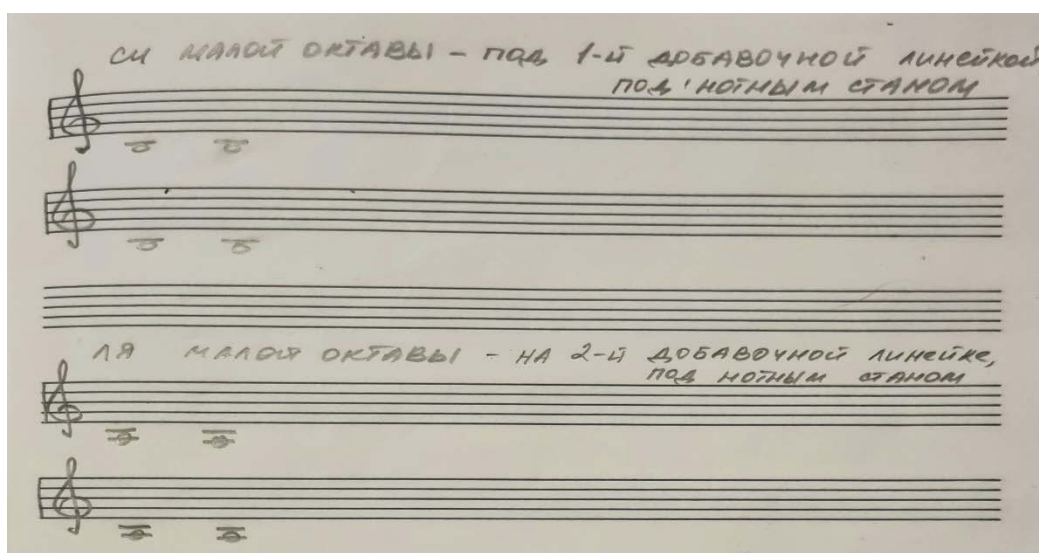 си малой октавы - под 1-й добавочной линейкой
под нотным станом
ля малой октавы - на 2-й добавочной линейке,
под нотным станом